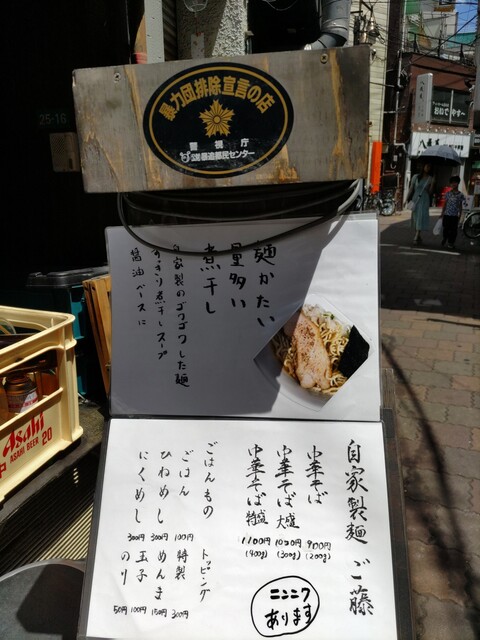 25-16
暴力団排除宣言の店
警視庁
暴追都民センター
麺かたい
量多い
煮干し
自家製のゴワゴワした麺
すっきり煮干しスープ
醤油ベースに
自家製麺 ご藤
中華そば 900円 (200g)
中華そば 大盛 1020円 (300g)
中華そば 特盛 1100円 (400g)
ごはんもの
ごはん 100円
ひねめし 300円
にくめし 300円
トッピング
特製 300円
めんま 150円
玉子 100円
のり 50円
ニンニク
あります
Asahi
ASAHI BEER 20